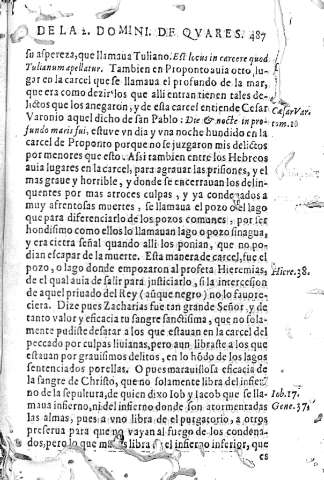 DE LA 2. DOMINI. DE QVARES. 487
su aspereza, que llamaua Tuliano. Est locus in carcere quod
Tulianum apellatur. Tambien en Proponto auia otro lu-
gar en la carcel que se llamaua el profundo de la mar,
que era como dezir los que alli entran tienen tales de-
lictos que los anegaron, y de esta carcel entiende Cesar
Varonio aquel dicho de san Pablo: Die & nocte in pro-
fundo maris fui, estuve vn dia y vna noche hundido en la
carcel de Proponto porque no se juzgaron mis delictos
por menores que esto. Assi tambien entre los Hebreos
auia lugares en la carcel, para agrauar las prisiones, y el
mas graue y horrible, y donde se encerrauan los delin-
quentes por mas atroces culpas, y ya condenados a
muy afrentosas muertes, se llamaua el pozo o el lago
que para diferenciarlo de los pozos comunes, por ser
hondisimo como ellos lo llamauan lago o pozo sin agua,
y era cierta señal quando alli los ponian, que no po-
dian escapar de la muerte. Esta manera de carcel, fue el
pozo, o lago donde empozaron al profeta Hieremias,
de el qual auia de salir para justiciarlo, si la intercesion
de aquel priuado del Rey (aũque negro) no lo fauore-
ciera. Dize pues Zacharias fue tan grande Señor, y de
tanto valor y eficacia tu sangre sanctisima, que no sola-
mente pudiste desatar a los que estauan en la carcel del
peccado por culpas liuianas, pero aun libraste a los que
estauan por grauisimos delitos, en lo hõdo de los lagos
sentenciados por ellas. O pues marauillosa eficacia de
la sangre de Christo, que no solamente libra del infier
no de la sepultura, de quien dixo Iob y Iacob que se lla-
maua infierno, ni del infierno donde son atormentadas
las almas, pues a vno libra del purgatorio, a otros
preserua para que no vayan al fuego de los condena-
dos, pero lo que mas es libra del infierno inferior, que
es
Cæsar Var.
tom. 10
Hiere. 38.
Iob. 17.
Gene. 37.